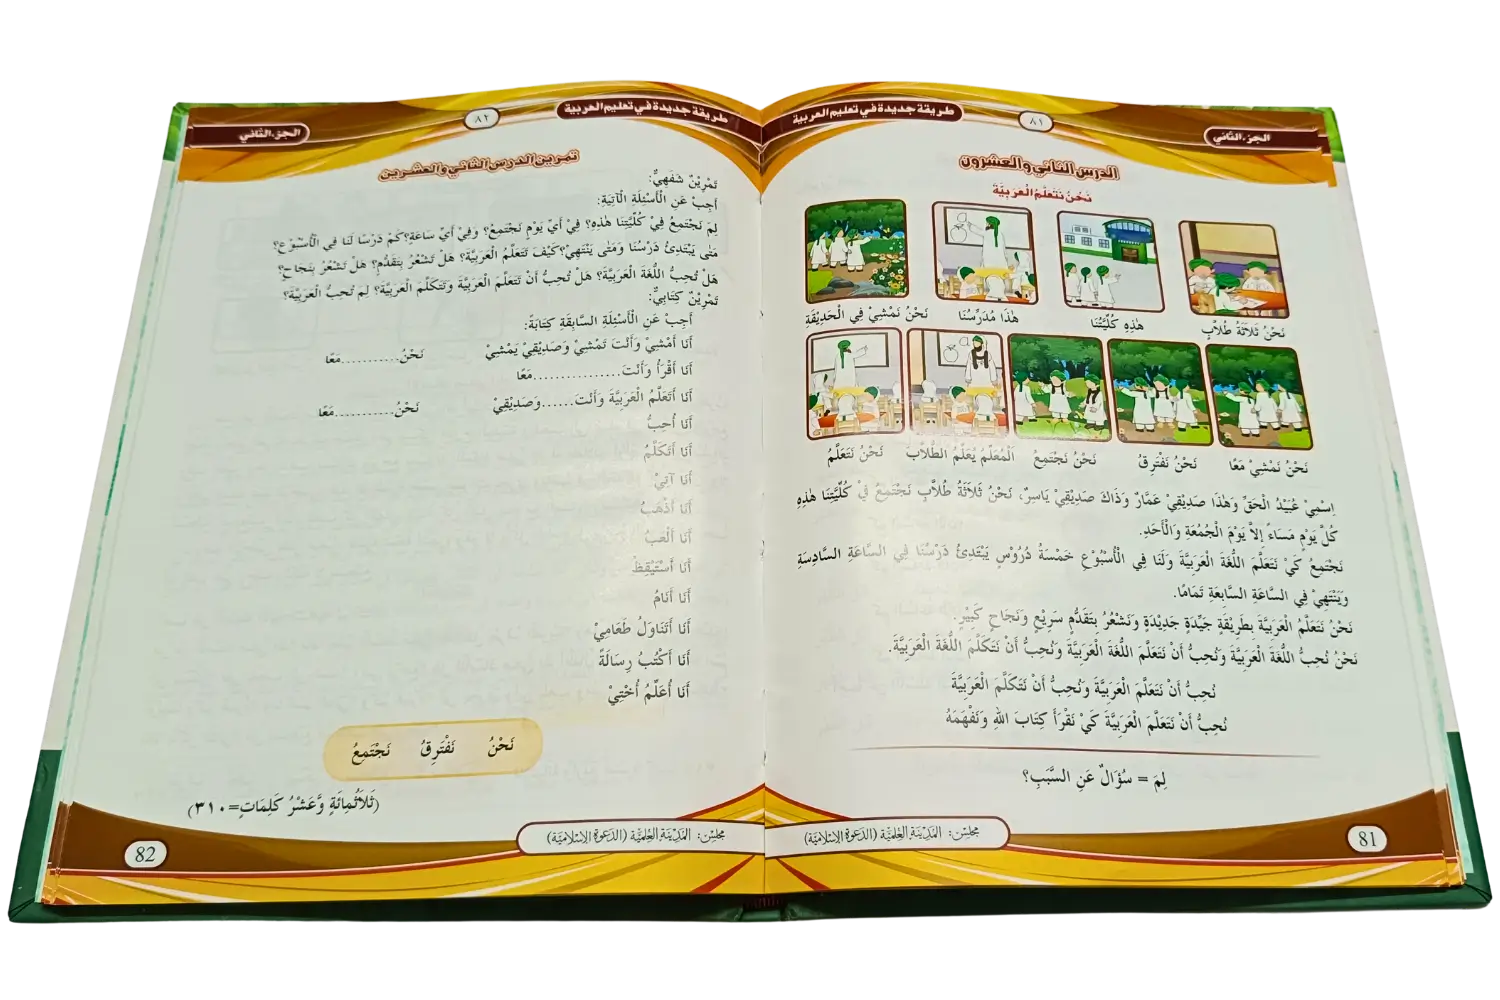 طريقة جديدة في تعليم العربية
٨١
الجزء الثاني
الدرس الثاني والعشرون
نَحْنُ نَتَعَلَّمُ الْعَرَبِيَّةَ
نَحْنُ ثَلَاثَةُ طُلَّابٍ
هٰذِهِ كُلِّيَّتُنَا
هٰذَا مُدَرِّسُنَا
نَحْنُ نَمْشِيْ فِي الْحَدِيْقَةِ
نَحْنُ نَمْشِيْ مَعًا
نَحْنُ نَفْتَرِقُ
نَحْنُ نَجْتَمِعُ
اَلْمُعَلِّمُ يُعَلِّمُ الطُّلَّابَ
نَحْنُ نَتَعَلَّمُ
اِسْمِيْ عُبَيْدُ الْحَقِّ وَهٰذَا صَدِيْقِيْ عَمَّارٌ وَذَاكَ صَدِيْقِيْ يَاسِرٌ، نَحْنُ ثَلَاثَةُ طُلَّابٍ نَجْتَمِعُ فِيْ كُلِّيَّتِنَا هٰذِهِ
كُلَّ يَوْمٍ مَسَاءً إِلَّا يَوْمَ الْجُمُعَةِ وَالْأَحَدِ.
نَجْتَمِعُ كَيْ نَتَعَلَّمَ اللُّغَةَ الْعَرَبِيَّةَ وَلَنَا فِي الْأُسْبُوْعِ خَمْسَةُ دُرُوْسٍ يَبْتَدِئُ دَرْسُنَا فِي السَّاعَةِ السَّادِسَةِ
وَيَنْتَهِيْ فِي السَّاعَةِ السَّابِعَةِ تَمَامًا.
نَحْنُ نَتَعَلَّمُ الْعَرَبِيَّةَ بِطَرِيْقَةٍ جَيِّدَةٍ جَدِيْدَةٍ وَنَشْعُرُ بِتَقَدُّمٍ سَرِيْعٍ وَنَجَاحٍ كَبِيْرٍ.
نَحْنُ نُحِبُّ اللُّغَةَ الْعَرَبِيَّةَ وَنُحِبُّ أَنْ نَتَعَلَّمَ اللُّغَةَ الْعَرَبِيَّةَ وَنُحِبُّ أَنْ نَتَكَلَّمَ اللُّغَةَ الْعَرَبِيَّةَ.
نُحِبُّ أَنْ نَتَعَلَّمَ الْعَرَبِيَّةَ وَنُحِبُّ أَنْ نَتَكَلَّمَ الْعَرَبِيَّةَ
نُحِبُّ أَنْ نَتَعَلَّمَ الْعَرَبِيَّةَ كَيْ نَقْرَأَ كِتَابَ اللهِ وَنَفْهَمَهُ
لِمَ = سُؤَالٌ عَنِ السَّبَبِ؟
مجلس: المدينة العلمية (الدعوة الإسلامية)
81
طريقة جديدة في تعليم العربية
٨٢
الجزء الثاني
تمرين الدرس الثاني والعشرين
تَمْرِيْنٌ شَفَهِيٌّ:
أَجِبْ عَنِ الْأَسْئِلَةِ الْآتِيَةِ:
لِمَ نَجْتَمِعُ فِيْ كُلِّيَّتِنَا هٰذِهِ؟ فِيْ أَيِّ يَوْمٍ نَجْتَمِعُ؟ وَفِيْ أَيِّ سَاعَةٍ؟ كَمْ دَرْسًا لَنَا فِي الْأُسْبُوْعِ؟
مَتٰى يَبْتَدِئُ دَرْسُنَا وَمَتٰى يَنْتَهِيْ؟ كَيْفَ نَتَعَلَّمُ الْعَرَبِيَّةَ؟ هَلْ نَشْعُرُ بِتَقَدُّمٍ؟ هَلْ نَشْعُرُ بِنَجَاحٍ؟
هَلْ نُحِبُّ اللُّغَةَ الْعَرَبِيَّةَ؟ هَلْ نُحِبُّ أَنْ نَتَعَلَّمَ الْعَرَبِيَّةَ وَنَتَكَلَّمَ الْعَرَبِيَّةَ؟ لِمَ نُحِبُّ الْعَرَبِيَّةَ؟
تَمْرِيْنٌ كِتَابِيٌّ:
أَجِبْ عَنِ الْأَسْئِلَةِ السَّابِقَةِ كِتَابَةً:
أَنَا أَمْشِيْ وَأَنْتَ تَمْشِيْ وَصَدِيْقِيْ يَمْشِيْ نَحْنُ...........مَعًا
أَنَا أَقْرَأُ وَأَنْتَ................مَعًا
أَنَا أَتَعَلَّمُ الْعَرَبِيَّةَ وَأَنْتَ......وَصَدِيْقِيْ نَحْنُ...........مَعًا
أَنَا أُحِبُّ
أَنَا أَتَكَلَّمُ
أَنَا آتِيْ
أَنَا أَذْهَبُ
أَنَا أَلْعَبُ
أَنَا أَسْتَيْقِظُ
أَنَا أَنَامُ
أَنَا أَتَنَاوَلُ طَعَامِيْ
أَنَا أَكْتُبُ رِسَالَةً
أَنَا أُعَلِّمُ أُخْتِيْ
نَحْنُ نَفْتَرِقُ نَجْتَمِعُ
(ثَلَاثُمِائَةٍ وَّعَشْرُ كَلِمَاتٍ=٣١٠)
مجلس: المدينة العلمية (الدعوة الإسلامية)
82